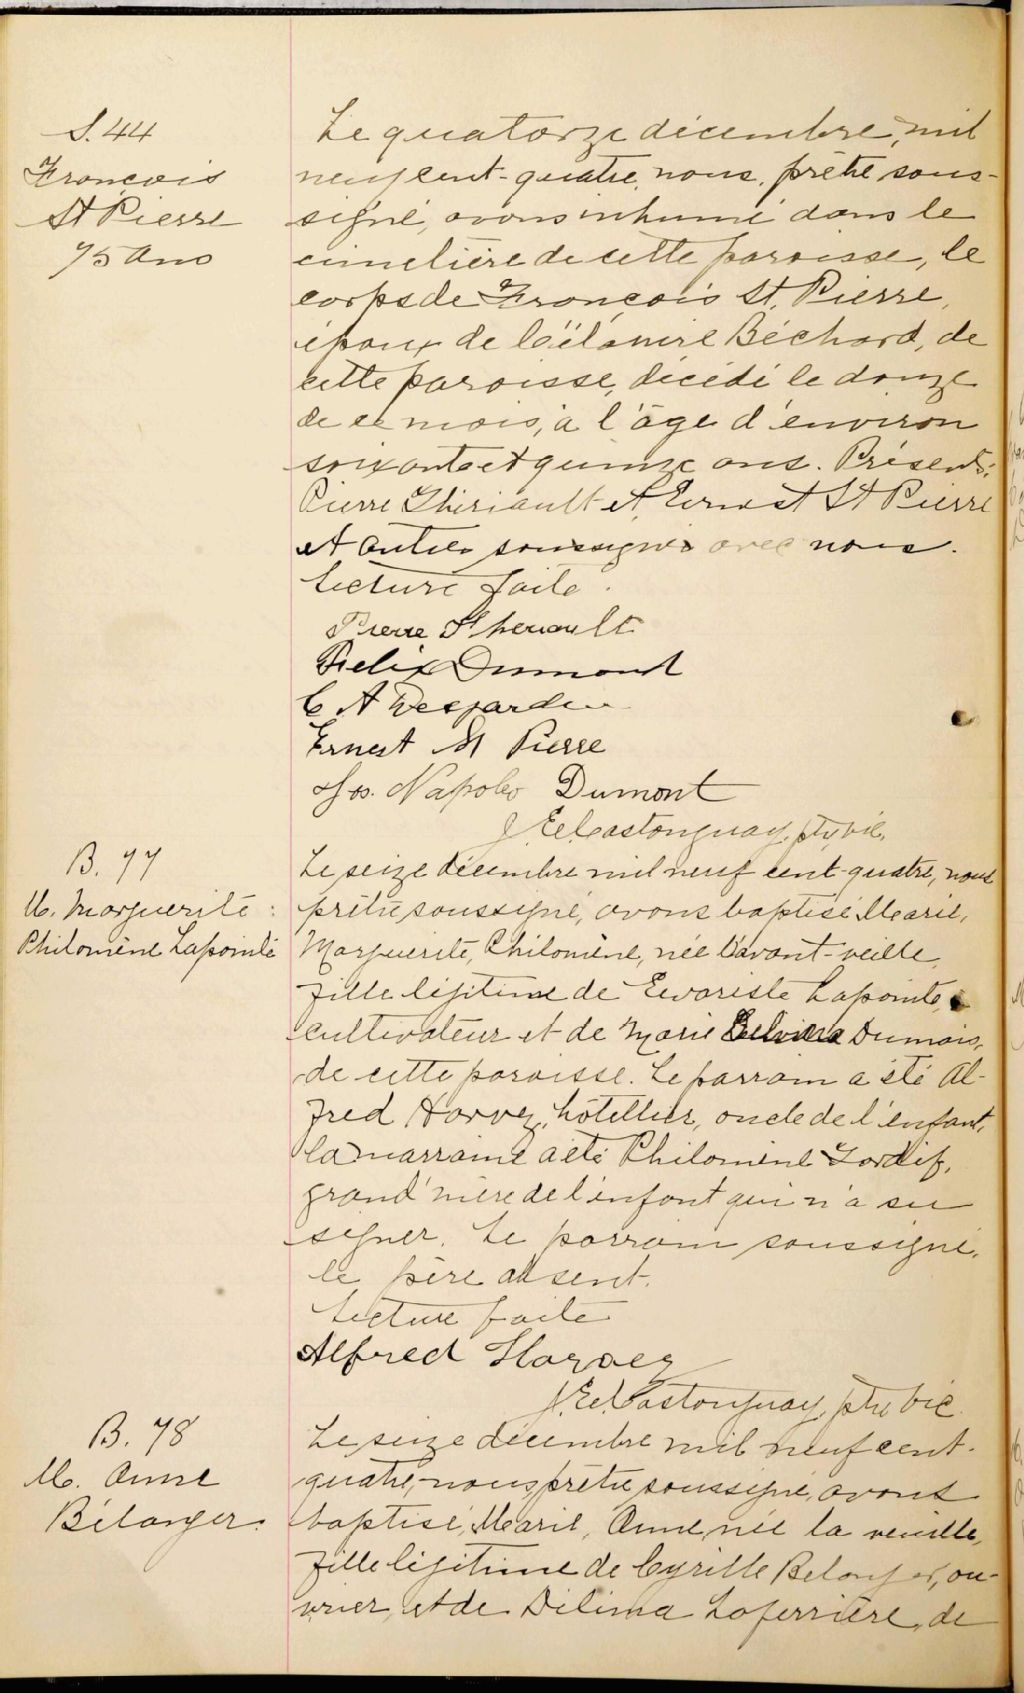 S. 44
François
St Pierre
75 ans
Le quatorze décembre, mil
neuf cent-quatre, nous, prêtre sous-
signé, avons inhumé dans le
cimetière de cette paroisse, le
corps de François St. Pierre,
époux de Célanire Béchard, de
cette paroisse, décédé le douze
de ce mois, à l'âge d'environ
soixante et quinze ans. Présents:
Pierre Thériault et Ernest St Pierre
et autres soussignés avec nous.
Lecture faite.
Pierre Theriault
Felix Dumont
C A Desjardins
Ernest St Pierre
Jos. Napoleo Dumont
J. E. Castonguay, ptre, vic.
B. 77
M. Marguerite
Philomène Lapointe
Le seize décembre mil neuf cent-quatre, nous
prêtre soussigné, avons baptisé Marie,
Marguerite, Philomène, née l'avant-veille,
fille légitime de Evariste Lapointe,
cultivateur et de Marie Dumais,
de cette paroisse. Le parrain a été Al-
fred Harvey, hôtellier, oncle de l'enfant,
la marraine a été Philomène Tardif,
grand'mère de l'enfant qui n'a su
signer. Le parrain soussigné,
le père absent.
Lecture faite
Alfred Harvey
J. E. Castonguay, ptre vic.
B. 78
M. Anne
Bélanger.
Le seize décembre mil neuf cent-
quatre, nous, prêtre soussigné, avons
baptisé, Marie, Anne, née la veille,
fille légitime de Cyrille Belanger, ou-
vrier, et de Délima Laferrière, de